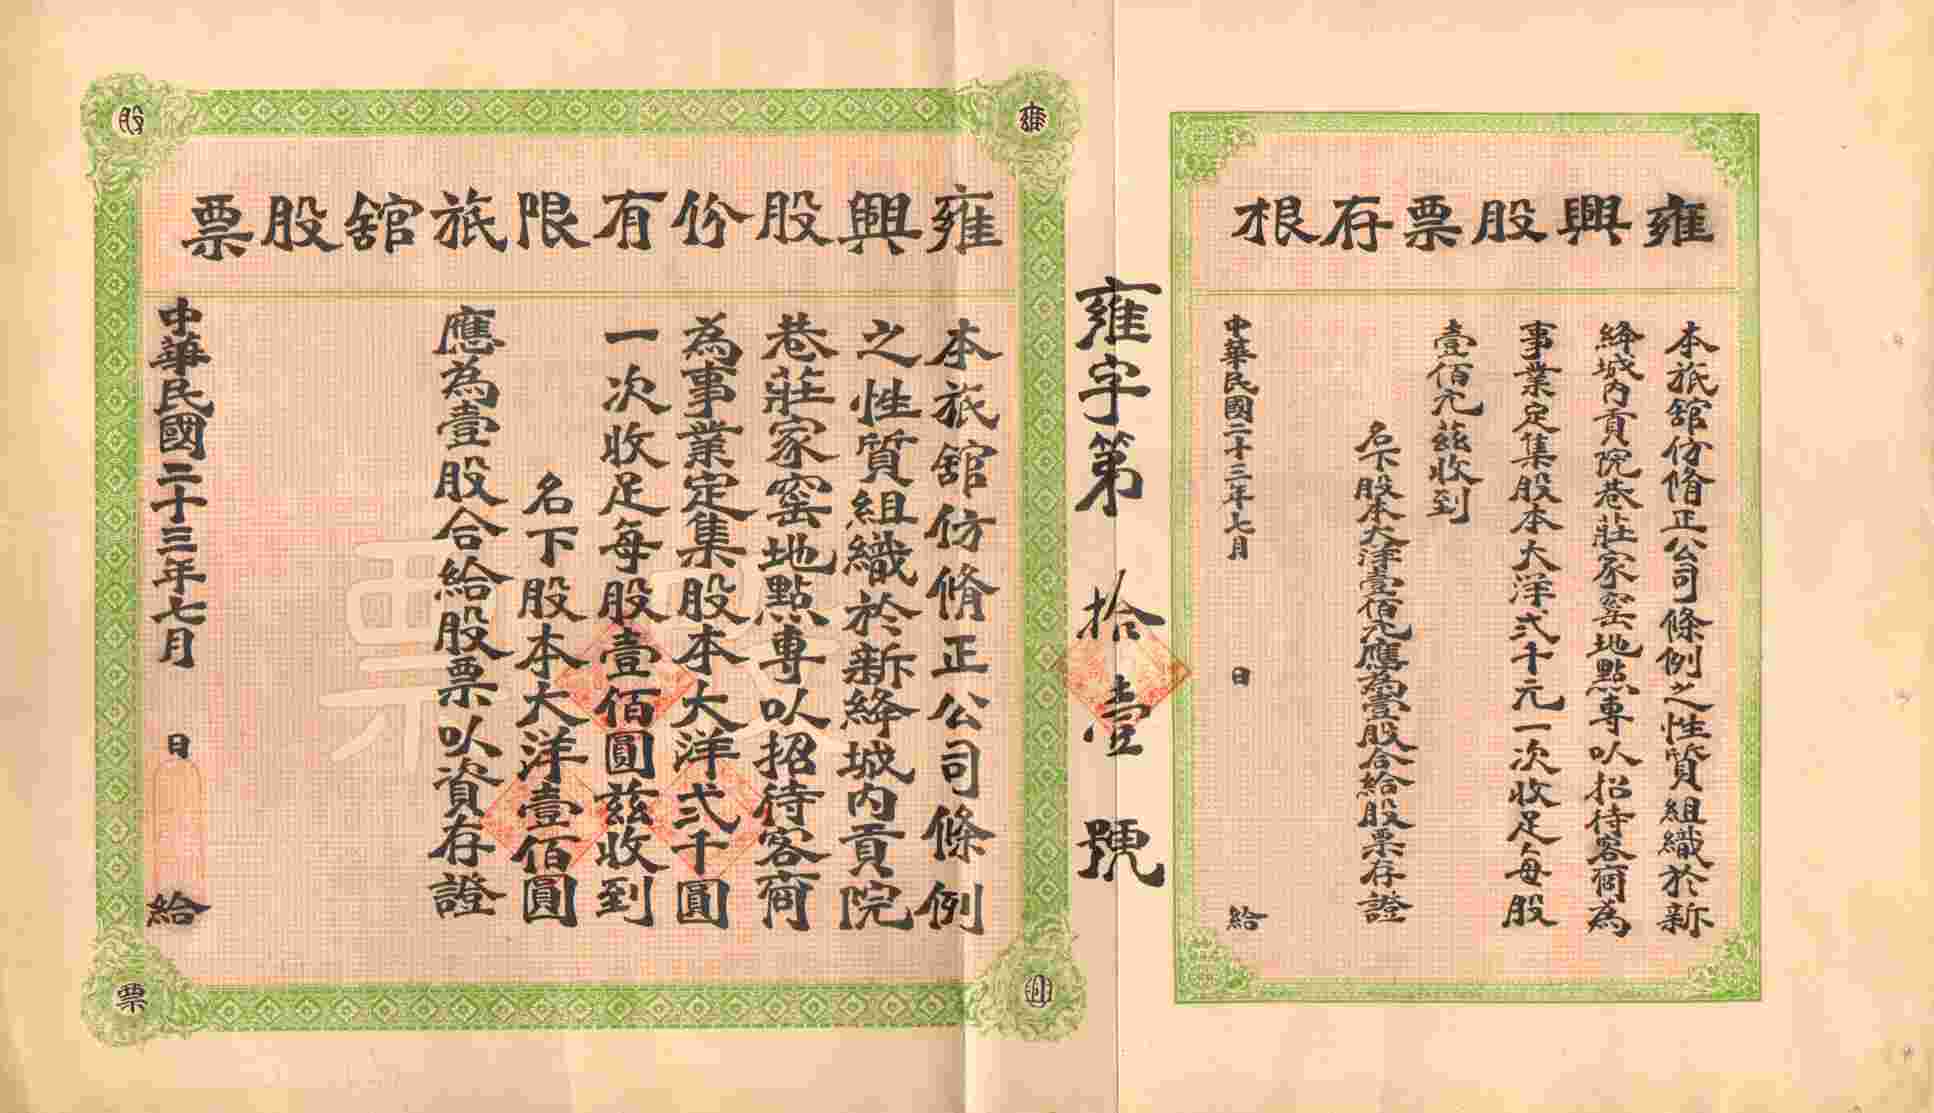 雍興股票存根
本旅舘仿脩正公司條例之性質組織於新
絳城內貢院巷莊家窑地點專以招待客商為
事業定集股本大洋弍千元一次收足每股
壹佰元茲收到
名下股本大洋壹佰元應為壹股合給股票存證
中華民國二十三年七月 日 給
雍字第拾壹號
雍興股份有限旅舘股票
本旅舘仿脩正公司條例
之性質組織於新絳城內貢院
巷莊家窑地點專以招待客商
為事業定集股本大洋弍千圓
一次收足每股壹佰圓茲收到
名下股本大洋壹佰圓
應為壹股合給股票以資存證
中華民國二十三年七月 日 給
雍
股
票